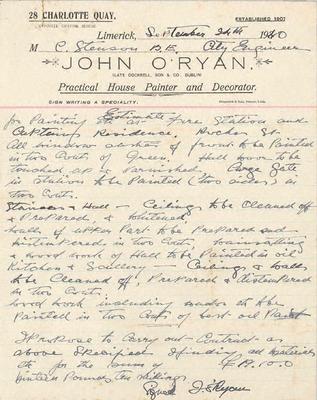 28 CHARLOTTE QUAY.
ESTABLISHED 1907
OPPOSITE CUSTOM HOUSE
Limerick, September 24th 1940
M C. Stenson B.E. City Engineer
JOHN O'RYAN,
(LATE DOCKRELL, SON & CO. DUBLIN)
Practical House Painter and Decorator.
SIGN WRITING A SPECIALITY.
Estimate For
for Painting at Fire Station and
Captains Residence, Roches St.
All window sashes of front to be Painted
in two Coats of Green, Hall door to be
touched up & Varnished, Large Gate
in Station to be Painted (two sides) in
two Coats.
Staircase & Hall – Ceilings to be Cleaned off
& Prepared, & whitened,
walls of upper Part to be Prepared and
distempered in two Coats, wainscotting
& wood work of Hall to be Painted in oil
Kitchen & Scullery – Ceilings & walls
to be Cleaned off, Prepared & Distempered
in two Coats,
wood work including to be
Painted in two Coats of best oil Paint
I Propose to Carry out Contract as
above Specified finding all materials
etc for the Sum of £19.10.0
Nineteen Pounds ten shillings
Signed J. O'Ryan